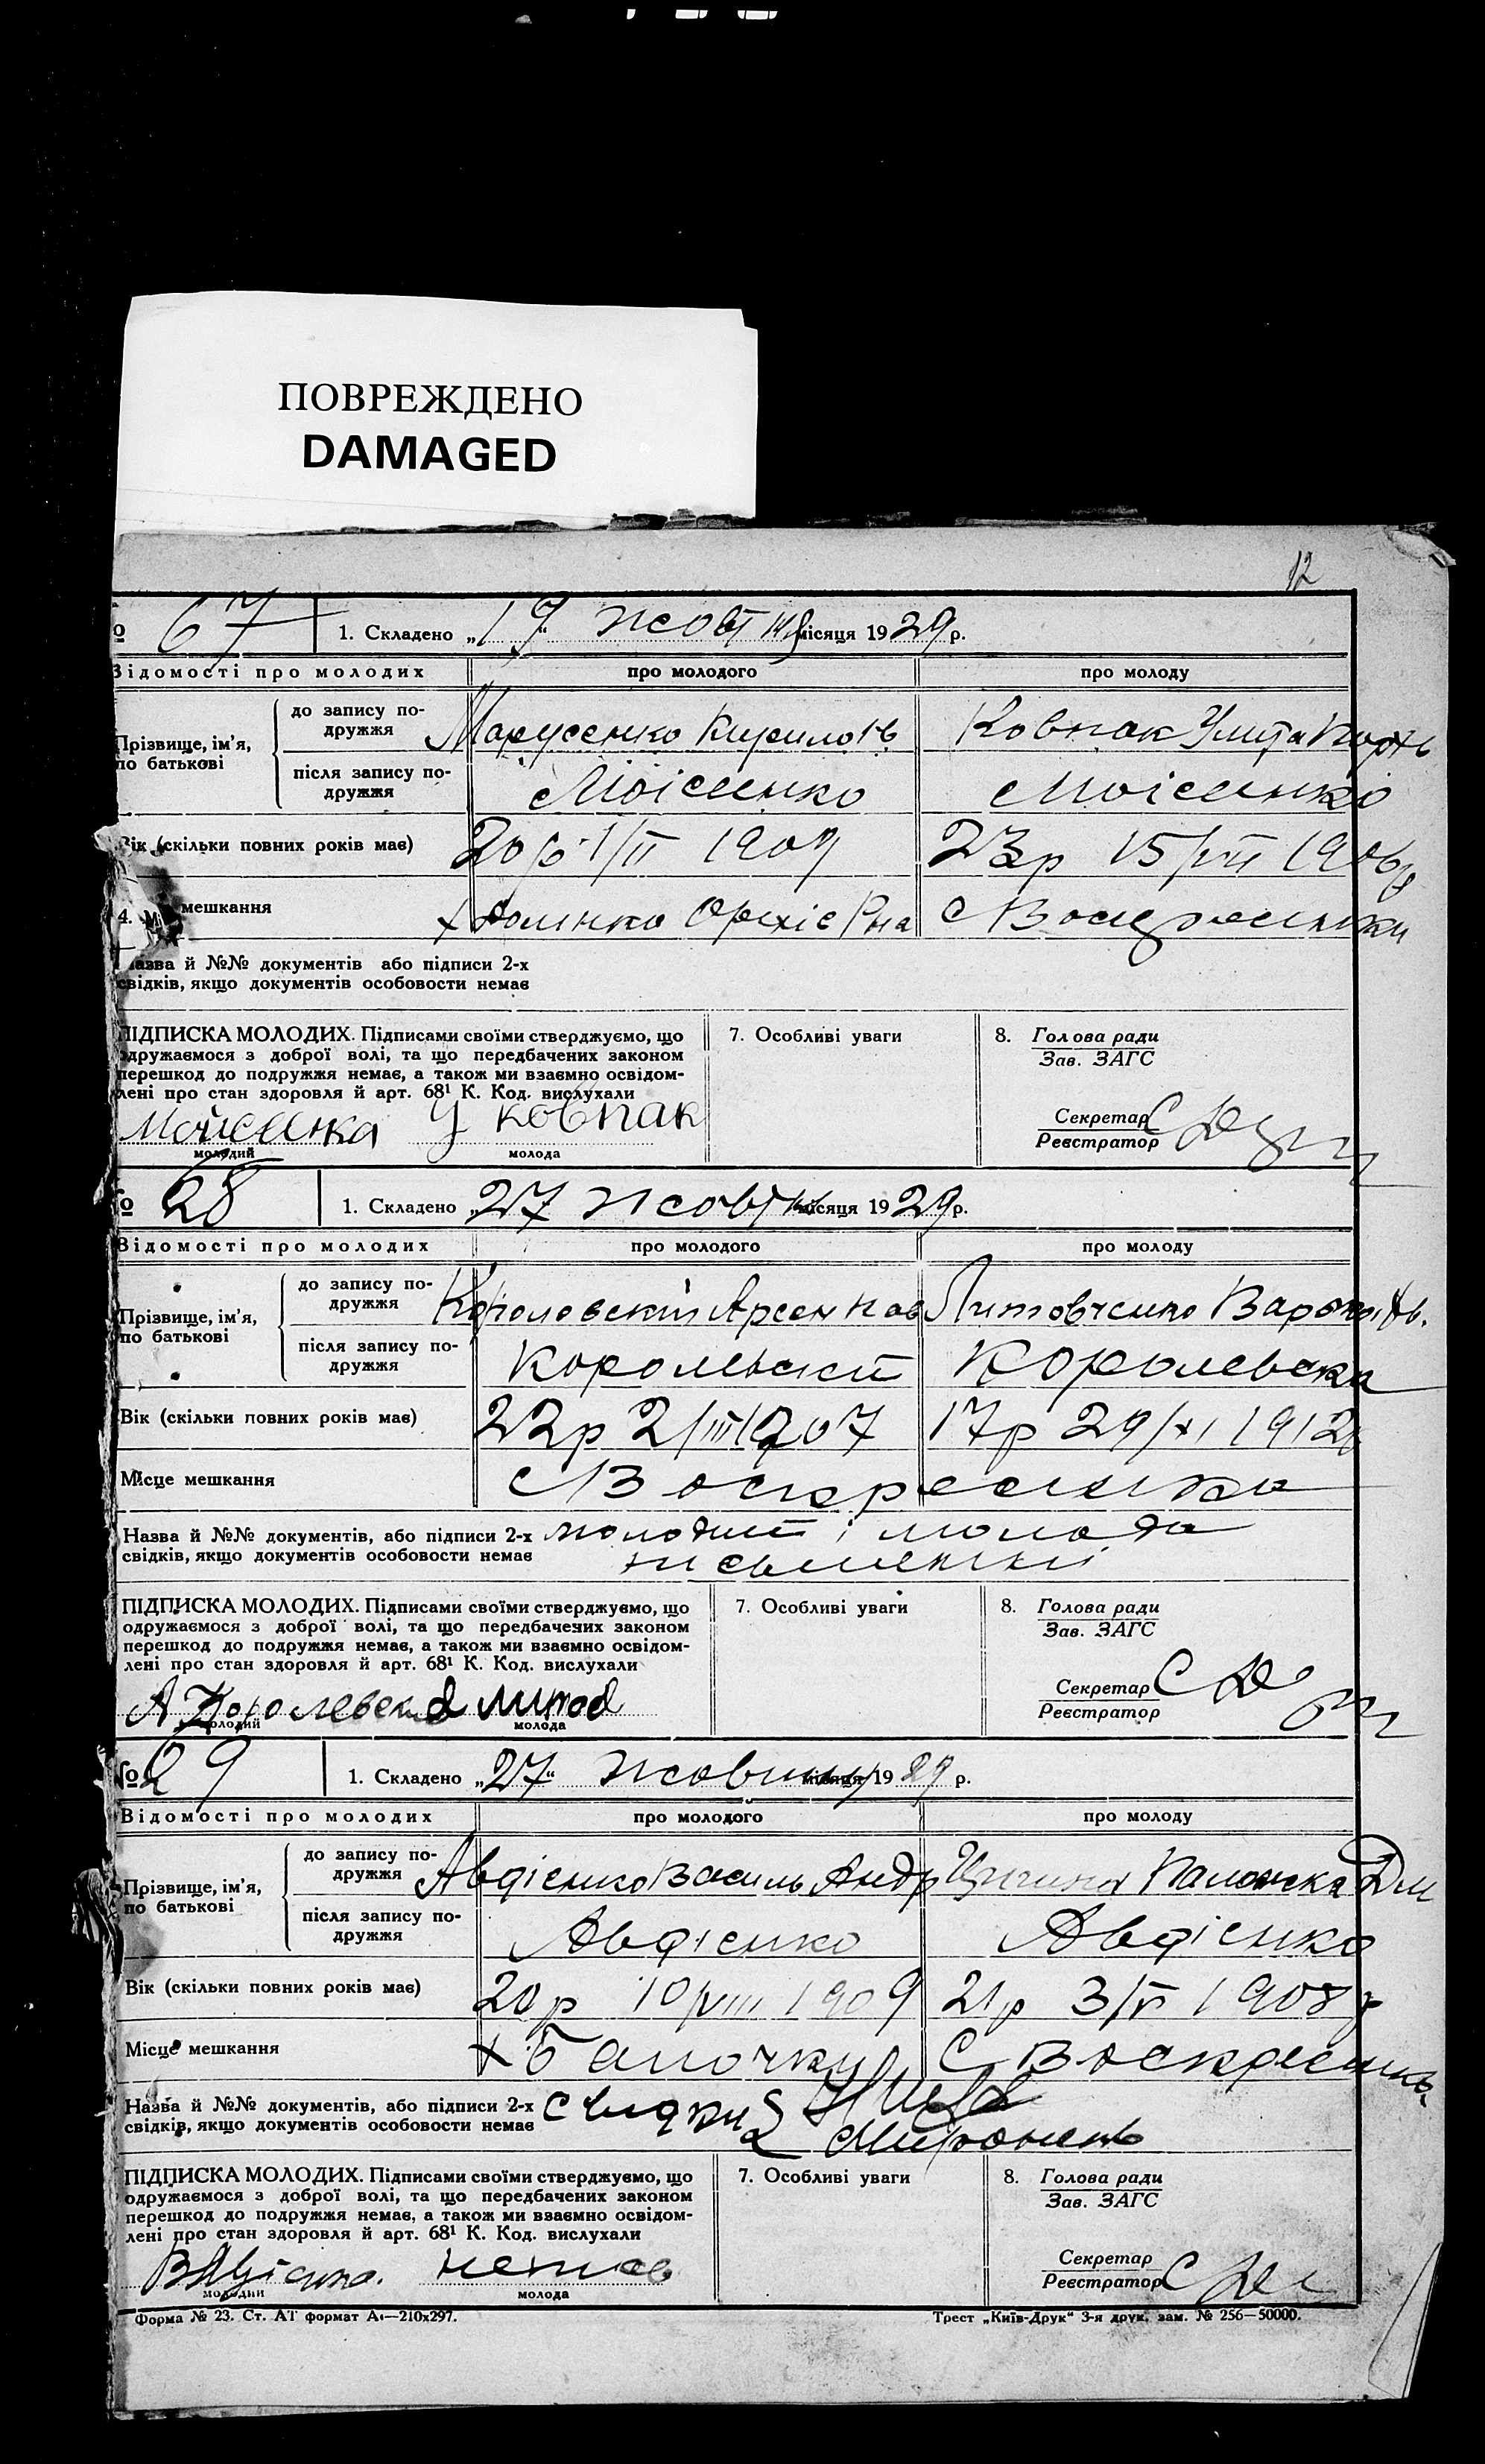 ПОВРЕЖДЕНО
DAMAGED
12
№ 67 1. Складено „19“ жовтня місяця 1929 р.
Відомості про молодих про молодого про молоду
Прізвище, ім’я, по батькові
до запису по-дружжя Кирило Ковпак Улита
після запису по-дружжя Моісеенко Моісеенко
Вік (скільки повних років має) 20р 1/II 190 23р 15/VII 1906р
4. Мі мешкання х Долинка Оріхів Р-на С Воскресенки
Назва й №№ документів або підписи 2-х
свідків, якщо документів особовости немає
ПІДПИСКА МОЛОДИХ. Підписами своїми стверджуємо, що
одружаємося з доброї волі, та що передбачених законом
перешкод до подружжя немає, а також ми взаємно освідом-
лені про стан здоровля й арт. 68¹ К. Код. вислухали
7. Особливі уваги
8. Голова ради
Зав. ЗАГС
Секретар
Реєстратор
У ковпак
молодий молода
№ 28 1. Складено „27 жовтня місяця 1929 р.
Відомості про молодих про молодого про молоду
Прізвище, ім’я, по батькові
до запису по-дружжя Арсен Литовченко
після запису по-дружжя Корольевскій Королевска
Вік (скільки повних років має) 22р 2/III 1907 17р 29/XI 1912р
Місце мешкання С Воскресенка
Назва й №№ документів, або підписи 2-х молодий і молода
свідків, якщо документів особовости немає письменні
ПІДПИСКА МОЛОДИХ. Підписами своїми стверджуємо, що
одружаємося з доброї волі, та що передбачених законом
перешкод до подружжя немає, а також ми взаємно освідом-
лені про стан здоровля й арт. 68¹ К. Код. вислухали
7. Особливі уваги
8. Голова ради
Зав. ЗАГС
Секретар
Реєстратор
А Литов
молодий молода
№ 29 1. Складено „27“ жовтня місяця 1929 р.
Відомості про молодих про молодого про молоду
Прізвище, ім’я, по батькові
до запису по-дружжя Авдієнко Василь Андр Палажка Дм
після запису по-дружжя Авдієнко Авдієнко
Вік (скільки повних років має) 20р 10/VIII 1909 21р 3/V 1908р
Місце мешкання х Балочки С Воскресенка
Назва й №№ документів, або підписи 2-х свідки
свідків, якщо документів особовости немає
ПІДПИСКА МОЛОДИХ. Підписами своїми стверджуємо, що
одружаємося з доброї волі, та що передбачених законом
перешкод до подружжя немає, а також ми взаємно освідом-
лені про стан здоровля й арт. 68¹ К. Код. вислухали
7. Особливі уваги
8. Голова ради
Зав. ЗАГС
Секретар
Реєстратор
молодий молода
Форма № 23. Ст. АТ формат А₄—210х297. Трест „Київ-Друк“ 3-я друк. зам. № 256—50000.